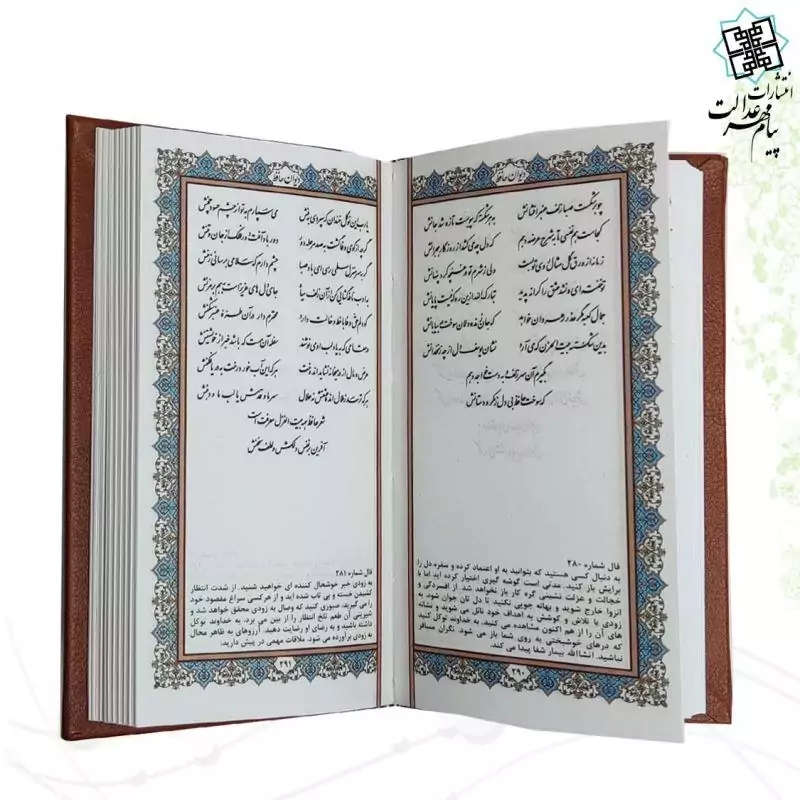 انتشارات
پیام مهر عدالت
دیوان حافظ
چو برشکست صبا زلف عنبر افشانش به هر شکسته که پیوست تازه شد جانش
کجاست همنفسی تا به شرح عرضه دهم که دل چه می کشد از روزگار هجرانش
زمانه از ورق گل مثال روی تو بست ولی ز شرم تو در غنچه کرد پنهانش
تو خفته ای و نشد عشق را کرانه پدید تبارک الله از این ره که نیست پایانش
جمال کعبه مگر عذر رهروان خواهد که جان زنده دلان سوخت در بیابانش
بدین شکسته بیت الحزن که می آرد نشان یوسف دل از چه زنخدانش
بگیرم آن سر زلف و به دست خواجه دهم
که سوخت حافظ بی دل ز مکر و دستانش
فال شماره ۲۸۰
به دنبال کسی هستید که بتوانید به او اعتماد کرده و سفره دل را
برایش باز کنید. مدتی است گوشه گیری اختیار کرده اید اما با
خجالت و عزلت نشینی گره کار باز نخواهد شد. از افسردگی و
انزوا خارج شوید و بهانه جویی نکنید تا دل تان جوان شود. به
زودی با تلاش و کوشش به اهداف خود نائل می شوید و نشانه
های آن را از هم اکنون مشاهده می کنید. به خداوند توکل کنید
که درهای خوشبختی به روی شما باز می شود. نگران مسافر
نباشید. انشاالله بیمار شفا پیدا می کند.
۲۹۰
دیوان حافظ
یا رب این نوگل خندان که سپردی به منش می سپارم به تو از چشم حسود چمنش
گرچه از کوی وفا گشت به صد مرحله دور دور باد آفت دور فلک از جان و تنش
گر به سر منزل سلمی رسی ای باد صبا چشم دارم که سلامی برسانی ز منش
به ادب نافه گشایی کن از آن زلف سیاه جای دل های عزیز است به هم بر مزنش
گو دلم حق وفا با خط و خالت دارد محترم دار در آن طره عنبر شکنش
در مقامی که به یاد لب او می نوشند سفله آن مست که باشد خبر از خویشتنش
عرض و مال از در میخانه نشاید اندوخت هر که این آب خورد رخت به دریا فکنش
هر که ترسد ز ملال اندوه عشقش نه حلال سر ما و قدمش یا لب ما و دهنش
شعر حافظ همه بیت الغزل معرفت است
آفرین بر نفس دلکش و لطف سخنش
فال شماره ۲۸۱
به زودی خبر خوشحال کننده ای خواهید شنید. از شدت انتظار
کشیدن خسته و بی تاب شده اید و از هر کسی سراغ مقصود خود
را می گیرید. صبوری کنید که وصال به زودی محقق خواهد شد و
شیرینی آن طعم تلخ انتظار را از بین می برد. به خداوند توکل
داشته باشید و به رضای او رضایت دهید. آرزوهای به ظاهر محال
به زودی برآورده می شود. ملاقات مهمی در پیش دارید.
۲۹۱